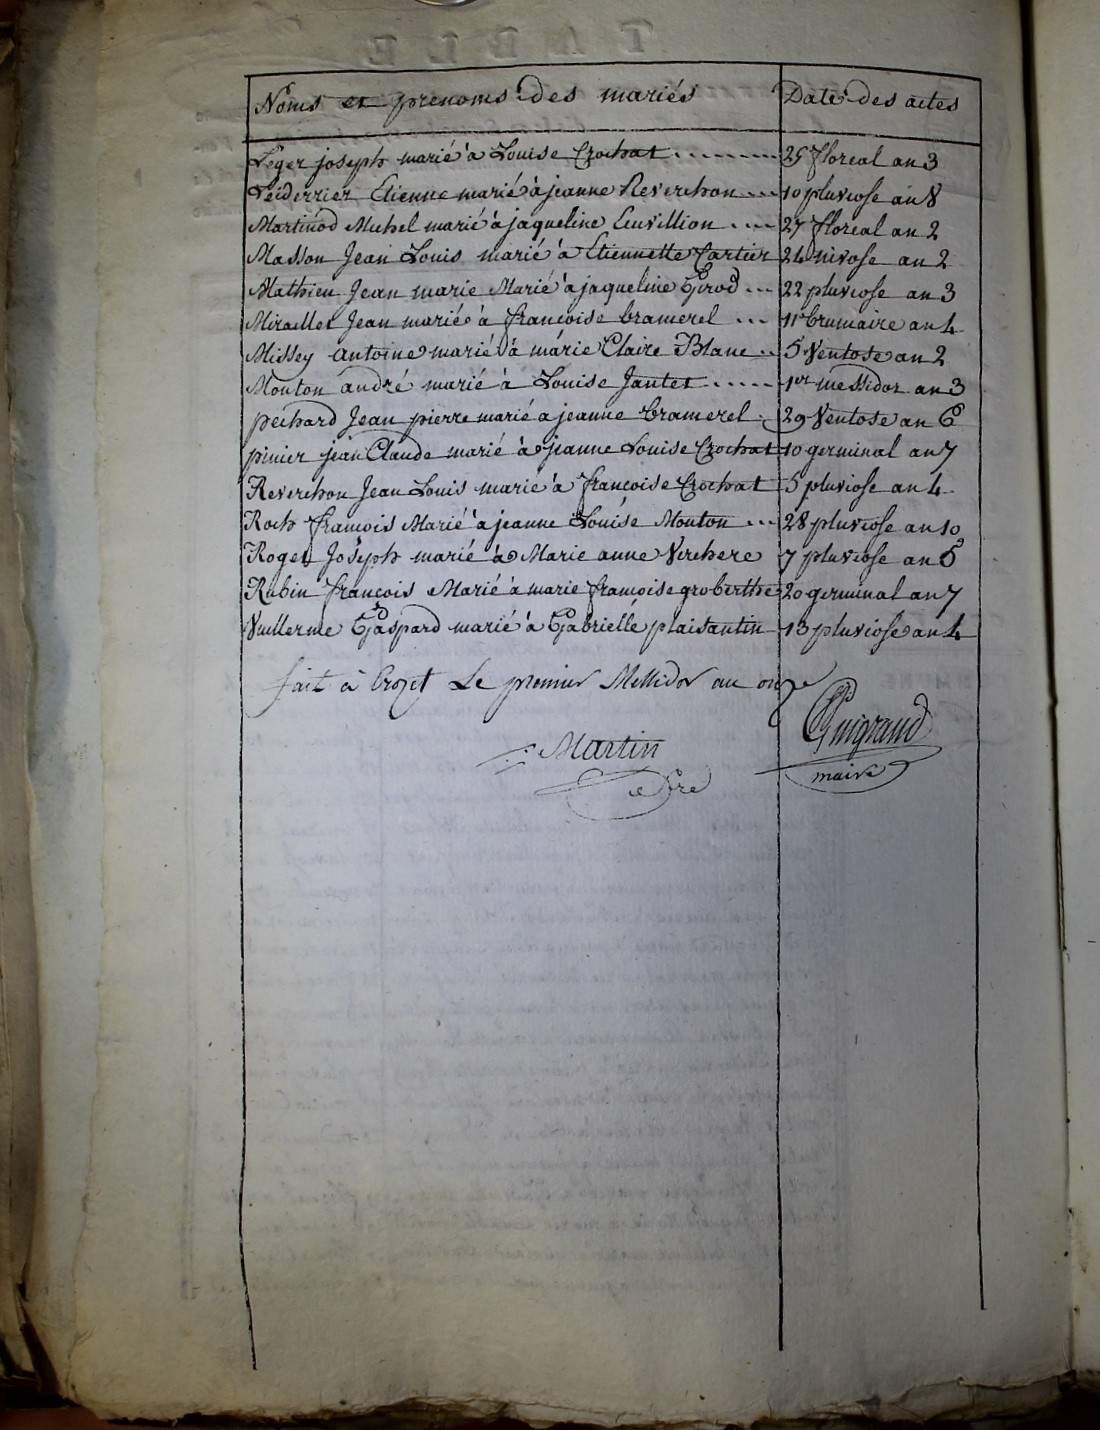 Noms et prenoms des mariés Date des actes
Léger joseph marié à Louise Crochat 25 floreal an 3
Etienne marié à jeanne Reverchon 10 pluviose an 8
Martinod Michel marié à jaqueline Cuvillion 27 floreal an 2
Masson Jean Louis marié à Etiennette Cartier 24 nivose an 2
Mathieu Jean marie Marié à jaqueline Girod 22 pluviose an 3
Miraillet Jean marié à françoise bramerel 11 brumaire an 4
Missey antoine marié à marie Claire Blanc 5 Ventose an 2
Mouton andré marié à Louise Jantet 1er messidor an 3
pechard Jean pierre marié a jeanne bramerel 29 Ventose an 6
pinier jean Claude marié à jeanne Louise Crochat 10 germinal an 7
Reverchon Jean Louis marié à françoise Crochat 5 pluviose an 4
Roch françois Marié à jeanne Louise Mouton 28 pluviose an 10
Roget Joseph marié à Marie anne Verchere 7 pluviose an 6
Rubin françois Marié à marie françoise groberthe 20 germinal an 7
Vuillerme Gaspard marié à Gabrielle plaisantin 13 pluviose an 4
fait à Crozet Le premier Messidor an onze
Martin Guigrand
Sre maire